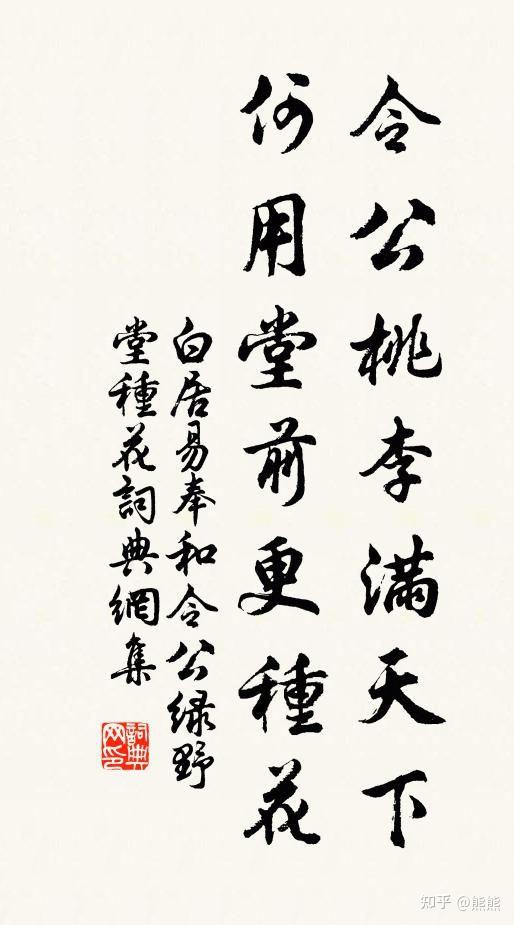 令公桃李滿天下
何用堂前更種花
白居易奉和令公緑野
堂種花詞典網集
詞典网印
知乎 @熊熊